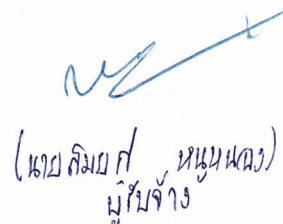 (นายสมยศ หนูหนอง)
ผู้รับจ้าง